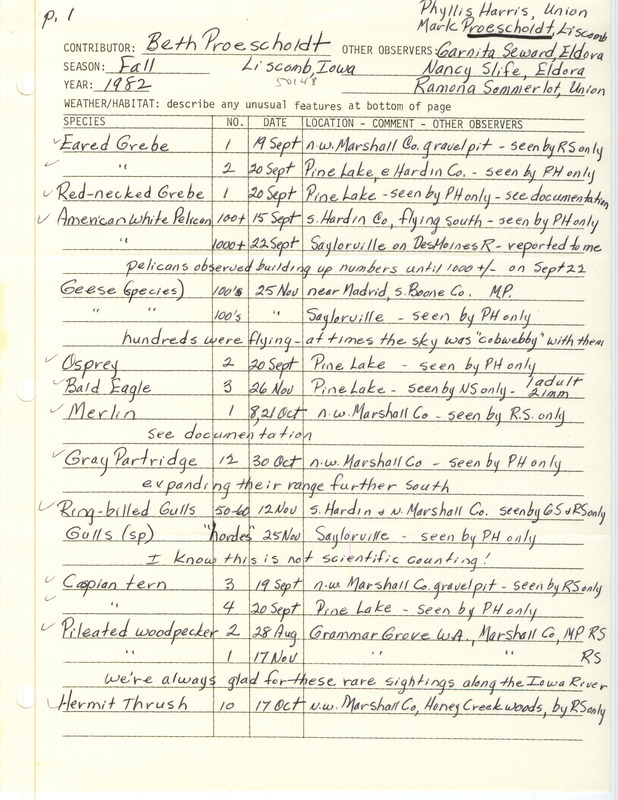 p. 1
Phyllis Harris, Union
Mark Proescholdt, Liscomb
CONTRIBUTOR: Beth Proescholdt OTHER OBSERVERS: Garnita Seward, Eldora
SEASON: Fall Liscomb, Iowa Nancy Slife, Eldora
YEAR: 1982 50148 Ramona Sommerlot, Union
WEATHER/HABITAT: describe any unusual features at bottom of page
SPECIES NO. DATE LOCATION - COMMENT - OTHER OBSERVERS
✓ Eared Grebe 1 19 Sept n.w. Marshall Co. gravel pit - seen by RS only
✓ " 2 20 Sept Pine Lake, e Hardin Co. - seen by PH only
✓ Red-necked Grebe 1 20 Sept Pine Lake - seen by PH only - see documentation
✓ American White Pelican 100+ 15 Sept s. Hardin Co, flying south - seen by PH only
" 1000+ 22 Sept Saylorville on DesMoines R - reported to me
pelicans observed building up numbers until 1000 +/- on Sept 22
Geese (species) 100's 25 Nov near Madrid, s. Boone Co. M.P.
" " 100's " Saylorville - seen by PH only
hundreds were flying - at times the sky was "cobwebby" with them
✓ Osprey 2 20 Sept Pine Lake - seen by PH only
✓ Bald Eagle 3 26 Nov Pine Lake - seen by NS only - 1 adult 2 imm
✓ Merlin 1 8,21 Oct n.w. Marshall Co - seen by R.S. only
see documentation
✓ Gray Partridge 12 30 Oct n.w. Marshall Co - seen by PH only
expanding their range further south
✓ Ring-billed Gulls 50-60 12 Nov s. Hardin & N. Marshall Co. seen by GS & RS only
Gulls (sp) "hordes" 25 Nov Saylorville - seen by PH only
I know this is not scientific counting!
✓ Caspian tern 3 19 Sept n.w. Marshall Co. gravel pit - seen by RS only
✓ " 4 20 Sept Pine Lake - seen by PH only
✓ Pileated woodpecker 2 28 Aug Grammar Grove W.A., Marshall Co, MP RS
" 1 17 Nov " " RS
we're always glad for these rare sightings along the Iowa River
✓ Hermit Thrush 10 17 Oct n.w. Marshall Co, Honey Creek woods, by RS only